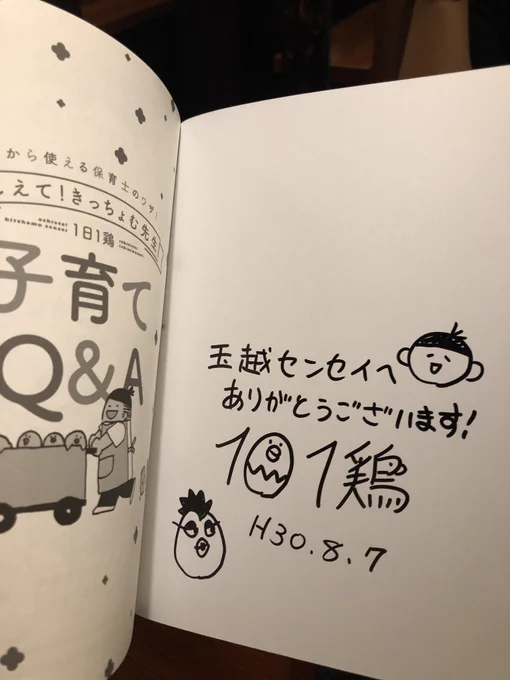 から使える保育士のワザ!
えて!きっちょむ先生
1日1鶏
子育て
Q&A
玉越センセイへ
ありがとうございます!
1日1鶏
H30.8.7